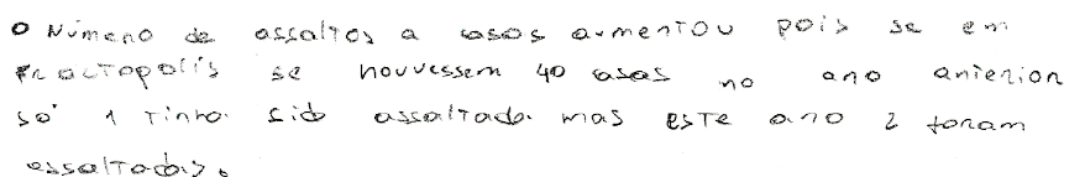 O Número de assaltos a casas aumentou pois se em
Fractopolis se houvessem 40 casas no ano anterior
só 1 tinha sido assaltada mas este ano 2 foram
assaltadas.